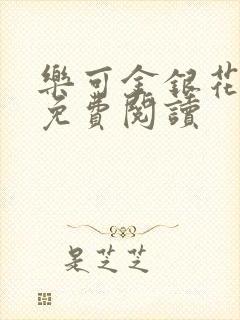 樂可金銀花
免費閱讀
是芝芝